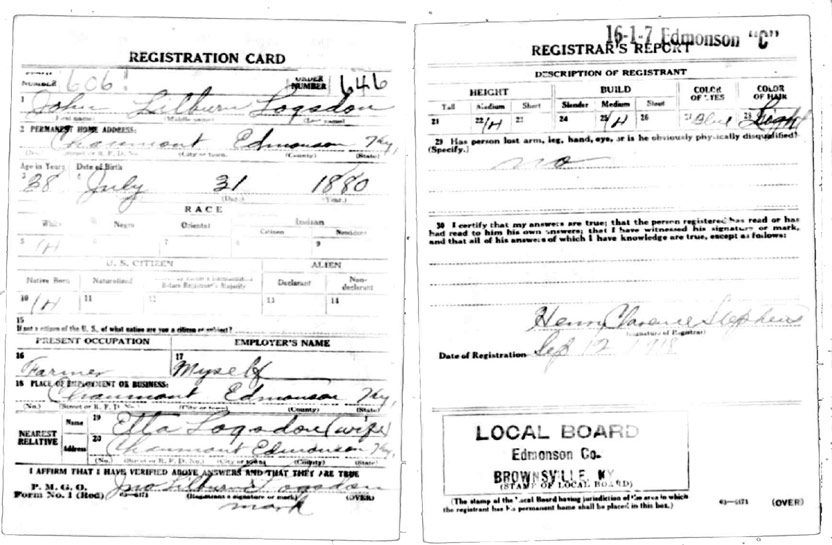 REGISTRATION CARD
NUMBER 606 ORDER NUMBER 646
1 John Lilburn Logsdon
(First name) (Middle name) (Last name)
2 PERMANENT HOME ADDRESS:
Chaumont Edmonson Ky,
(No.) (Street or R. F. D. No.) (City or town) (County) (State)
Age in Years Date of Birth
38 July 31 1880
(Day.) (Year.)
RACE
White Negro Oriental Indian
Citizen Noncitizen
5 6 7 8 9
U. S. CITIZEN ALIEN
Native Born Naturalized Declarant Non-declarant
10 11 12 13 14
15
If not a citizen of the U. S., of what nation are you a citizen or subject?
PRESENT OCCUPATION EMPLOYER'S NAME
16 Farmer 17 Myself
18 PLACE OF EMPLOYMENT OR BUSINESS:
Chaumont Edmonson Ky,
(No.) (Street or R. F. D. No.) (City or town) (County) (State)
NEAREST RELATIVE Name 19 Etta Logsdon (wife)
Address 20 Chaumont Edmonson Ky,
(No.) (Street or R. F. D. No.) (City or town) (County) (State)
I AFFIRM THAT I HAVE VERIFIED ABOVE ANSWERS AND THAT THEY ARE TRUE
P. M. G. O.
Form No. 1 (Red) 03—6171 Jno Lilburn Logsdon
(Registrant's signature or mark) (OVER)
mark
16-1-7 Edmonson "C"
REGISTRAR'S REPORT
DESCRIPTION OF REGISTRANT
HEIGHT BUILD COLOR OF EYES COLOR OF HAIR
Tall Medium Short Slender Medium Stout
21 22 23 24 25 26 27 Blue 28 Light
29 Has person lost arm, leg, hand, eye, or is he obviously physically disqualified?
(Specify.)
no
30 I certify that my answers are true; that the person registered has read or has
had read to him his own answers; that I have witnessed his signature or mark,
and that all of his answers of which I have knowledge are true, except as follows:
Henry Clarence Stephens
(Signature of Registrar)
Date of Registration Sep 12 1918
LOCAL BOARD
Edmonson Co.
BROWNSVILLE, KY
(STAMP OF LOCAL BOARD)
(The stamp of the Local Board having jurisdiction of the area in which
the registrant has his permanent home shall be placed in this box.)
03—6171 (OVER)